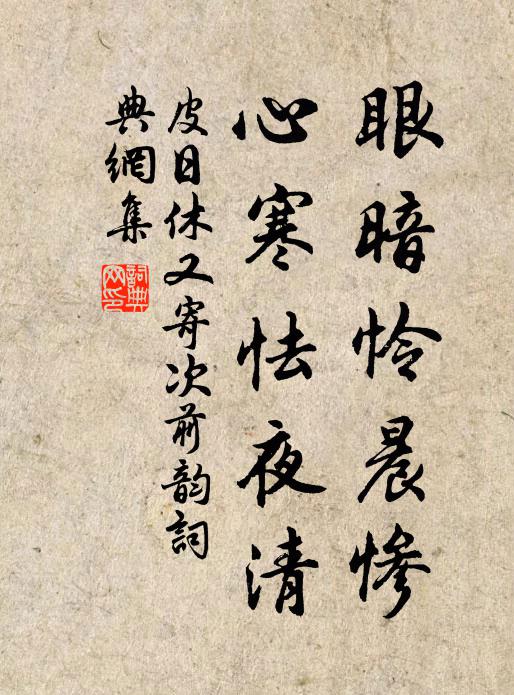 眼暗怜晨惨
心寒怯夜清
皮日休又寄次前韵詞
典網集
詞典網印